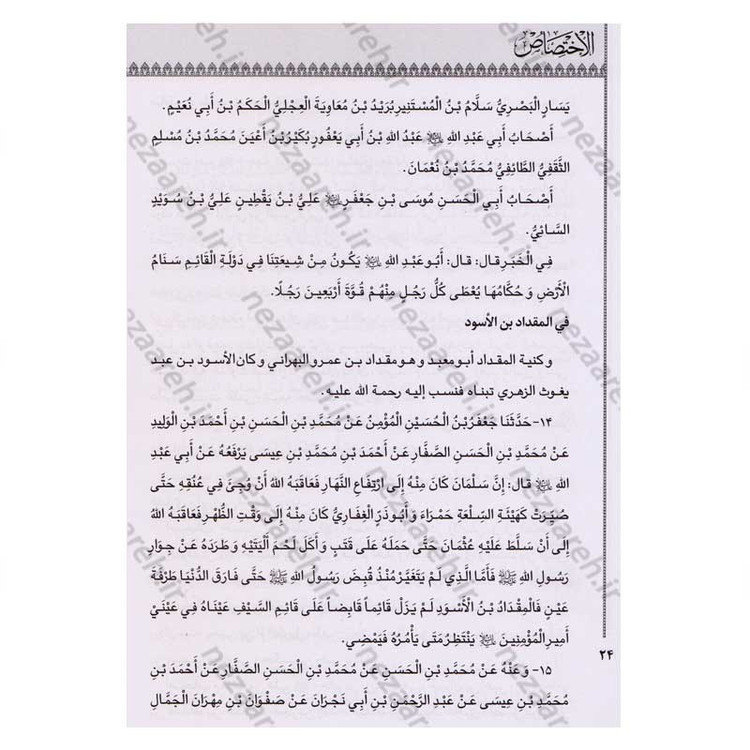 الاختصاص
يَسَارٍ الْبَصْرِيُّ سَلَّامُ بْنُ الْمُسْتَنِيرِ بُرَيْدُ بْنُ مُعَاوِيَةَ الْعِجْلِيُّ الْحَكَمُ بْنُ أَبِي نُعَيْمٍ.
أَصْحَابُ أَبِي عَبْدِ اللهِ ﷷ عَبْدُ اللهِ بْنُ أَبِي يَعْفُورٍ بُكَيْرُ بْنُ أَعْيَنَ مُحَمَّدُ بْنُ مُسْلِمٍ
الثَّقَفِيُّ الطَّائِفِيُّ مُحَمَّدُ بْنُ نُعْمَانَ.
أَصْحَابُ أَبِي الْحَسَنِ مُوسَى بْنِ جَعْفَرٍ عَلِيُّ بْنُ يَقْطِينٍ عَلِيُّ بْنُ سُوَيْدٍ
السَّائِيُّ.
فِي الْخَبَرِ قال: قال: أَبُو عَبْدِ اللهِ يَكُونُ مِنْ شِيعَتِنَا فِي دَوْلَةِ الْقَائِمِ سَنَامُ
الْأَرْضِ وَ حُكَّامُهَا يُعْطَى كُلُّ رَجُلٍ مِنْهُمْ قُوَّةَ أَرْبَعِينَ رَجُلًا.
في المقداد بن الأسود
و كنية المقداد أبو معبد و هو مقداد بن عمرو البهراني و كان الأسود بن عبد
يغوث الزهري تبناه فنسب إليه رحمة الله عليه.
١٤- حَدَّثَنَا جَعْفَرُ بْنُ الْحُسَيْنِ الْمُؤْمِنُ عَنْ مُحَمَّدِ بْنِ الْحَسَنِ بْنِ أَحْمَدَ بْنِ الْوَلِيدِ
عَنْ مُحَمَّدِ بْنِ الْحَسَنِ الصَّفَّارِ عَنْ أَحْمَدَ بْنِ مُحَمَّدِ بْنِ عِيسَى يَرْفَعُهُ عَنْ أَبِي عَبْدِ
اللهِ قال: إِنَّ سَلْمَانَ كَانَ مِنْهُ إِلَى ارْتِفَاعِ النَّهَارِ فَعَاقَبَهُ اللهُ أَنْ وُجِئَ فِي عُنُقِهِ حَتَّى
صُيِّرَتْ كَهَيْئَةِ السِّلْعَةِ حَمْرَاءَ وَ أَبُو ذَرٍّ الْغِفَارِيُّ كَانَ مِنْهُ إِلَى وَقْتِ الظُّهْرِ فَعَاقَبَهُ اللهُ
إِلَى أَنْ سَلَّطَ عَلَيْهِ عُثْمَانَ حَتَّى حَمَلَهُ عَلَى قَتَبٍ وَ أَكَلَ لَحْمَ أَلْيَتَيْهِ وَ طَرَدَهُ عَنْ جِوَارِ
رَسُولِ اللهِ ﷺ فَأَمَّا الَّذِي لَمْ يَتَغَيَّرْ مُنْذُ قُبِضَ رَسُولُ اللهِ ﷺ حَتَّى فَارَقَ الدُّنْيَا طَرْفَةَ
عَيْنٍ فَالْمِقْدَادُ بْنُ الْأَسْوَدِ لَمْ يَزَلْ قَائِماً قَابِضاً عَلَى قَائِمِ السَّيْفِ عَيْنَاهُ فِي عَيْنَيْ
أَمِيرِ الْمُؤْمِنِينَ يَنْتَظِرُ مَتَى يَأْمُرُهُ فَيَمْضِي.
٢٤
١٥- وَ عَنْهُ عَنْ مُحَمَّدِ بْنِ الْحَسَنِ عَنْ مُحَمَّدِ بْنِ الْحَسَنِ الصَّفَّارِ عَنْ أَحْمَدَ بْنِ
مُحَمَّدِ بْنِ عِيسَى عَنْ عَبْدِ الرَّحْمَنِ بْنِ أَبِي نَجْرَانَ عَنْ صَفْوَانَ بْنِ مِهْرَانَ الْجَمَّالِ
nezaareh.ir